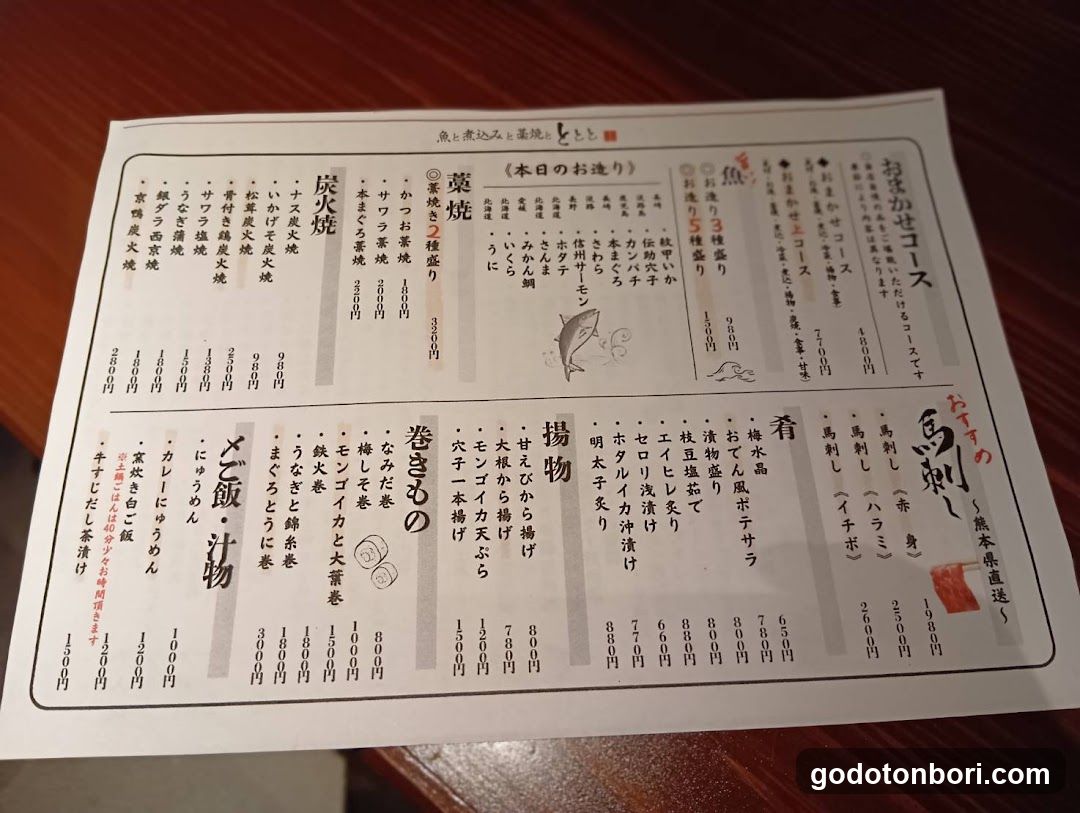 魚と煮込みと藁焼と ととと
おまかせコース
◎店自慢の品をご堪能いただけるコースです
季節により内容は異なります
4800円
◆おまかせコース
7700円
◆おまかせ上コース
魚
◎お造り3種盛り
980円
◎お造り5種盛り
1500円
《本日のお造り》
長崎・紋甲いか
淡路島・伝助穴子
鹿児島・カンパチ
長崎・本まぐろ
淡路・さわら
長野・信州サーモン
北海道・ホタテ
北海道・さんま
愛媛・みかん鯛
北海道・いくら
北海道・うに
藁焼
◎藁焼き2種盛り
3200円
・かつお藁焼
1800円
・サワラ藁焼
2000円
・本まぐろ藁焼
2200円
炭火焼
・ナス炭火焼
980円
・いかげそ炭火焼
980円
・松茸炭火焼
2500円
・骨付き鶏炭火焼
1380円
・サワラ塩焼
1500円
・うなぎ蒲焼
1800円
・銀ダラ西京焼
1800円
・京鴨炭火焼
2800円
おすすめ
馬刺し
～熊本県直送～
・馬刺し《赤 身》
1980円
・馬刺し《ハラミ》
2500円
・馬刺し《イチボ》
2600円
肴
・梅水晶
650円
・おでん風ポテサラ
780円
・漬物盛り
800円
・枝豆塩茹で
800円
・エイヒレ炙り
880円
・セロリ浅漬け
660円
・ホタルイカ沖漬け
770円
・明太子炙り
880円
揚物
・甘えびから揚げ
800円
・大根から揚げ
780円
・モンゴイカ天ぷら
1200円
・穴子一本揚げ
1500円
巻きもの
・なみだ巻
800円
・梅しそ巻
1000円
・モンゴイカと大葉巻
1500円
・鉄火巻
1800円
・うなぎと錦糸巻
1800円
・まぐろとうに巻
3000円
〆ご飯・汁物
・にゅうめん
1000円
・カレーにゅうめん
1200円
・窯炊き白ご飯
1200円
※土鍋ごはんは40分少々お時間頂きます
・牛すじだし茶漬け
1500円
godotonbori.com